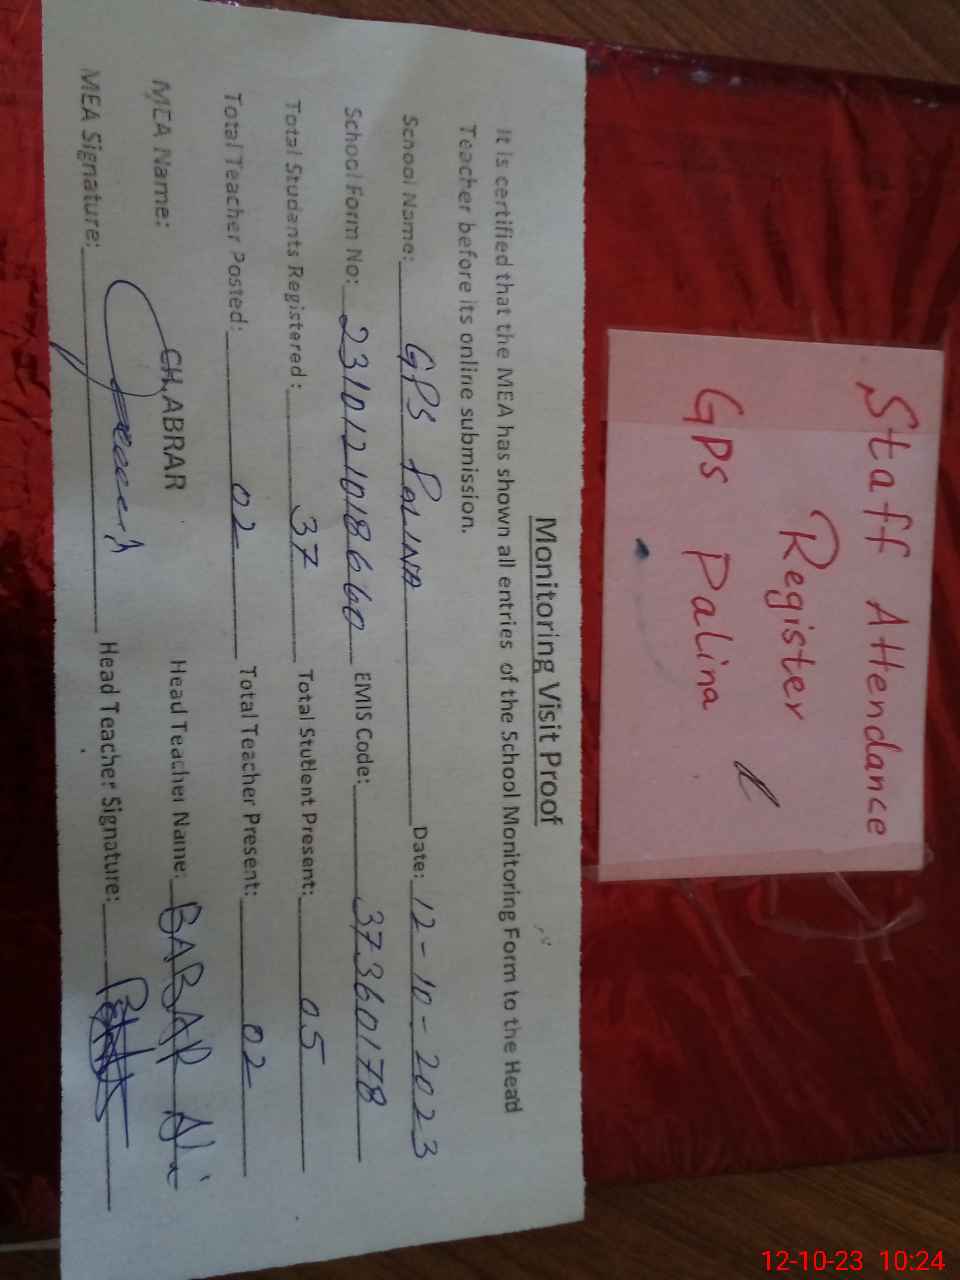 Staff Attendance
Register
GPS Palina
Monitoring Visit Proof
It is certified that the MEA has shown all entries of the School Monitoring Form to the Head
Teacher before its online submission.
School Name: GPS PALINA Date: 12-10-2023
School Form No: 2310121018660 EMIS Code: 37360178
Total Students Registered: 37 Total Student Present: 05
Total Teacher Posted: 02 Total Teacher Present: 02
MEA Name: CH,ABRAR Head Teacher Name: BABAR Ali
MEA Signature: Head Teacher Signature:
12-10-23 10:24